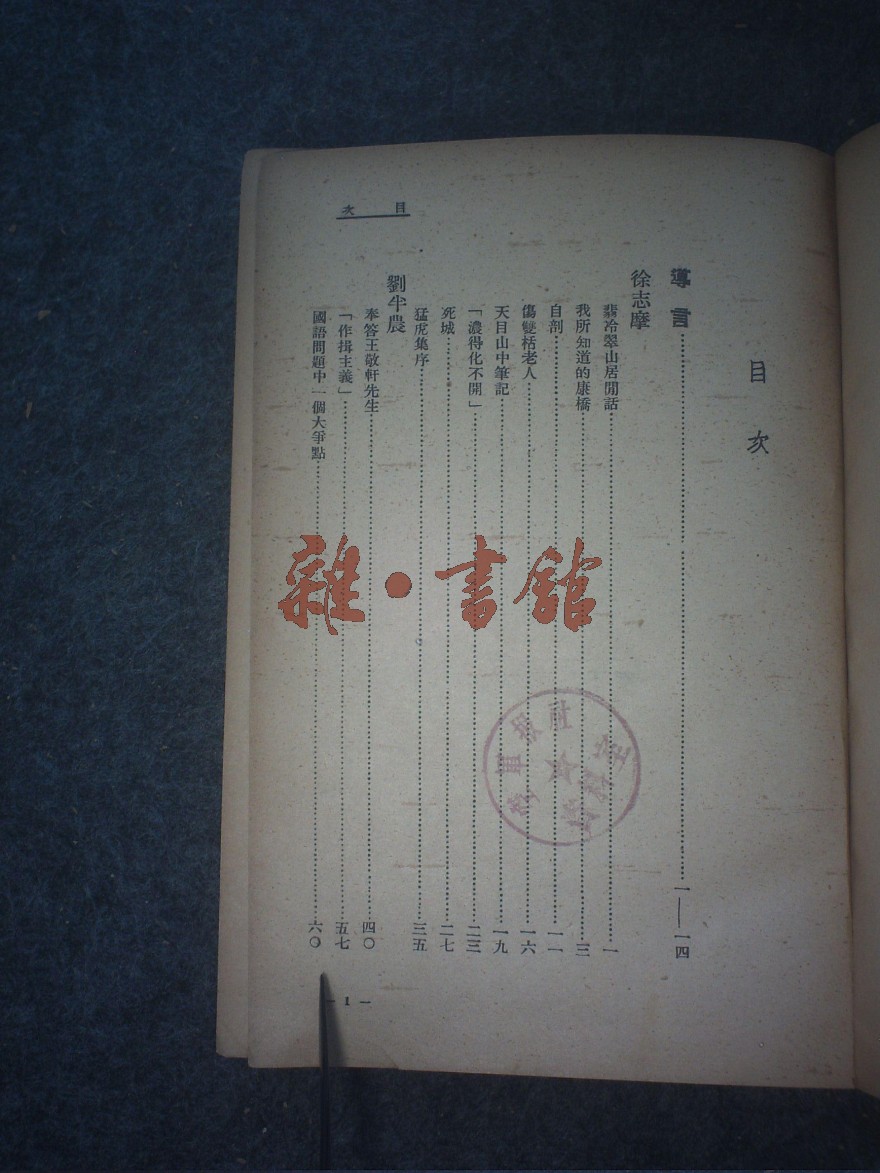 目次
目次
導言……一——一四
徐志摩
翡冷翠山居閒話……一
我所知道的康橋……三
自剖……一一
傷雙栝老人……一六
天目山中筆記……一九
「濃得化不開」……二三
死城……二七
猛虎集序……三五
劉半農
奉答王敬軒先生……四〇
「作揖主義」……五七
國語問題中一個大爭點……六〇
— 1 —
雜·書館
報社
資料室